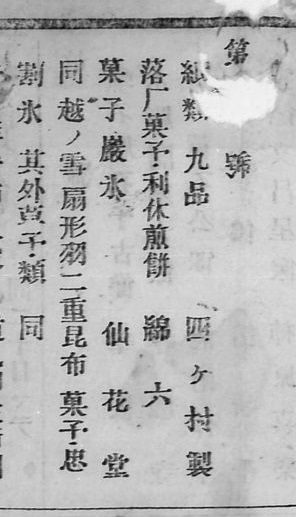 第 號
紙類 九品 四ヶ村製
落厂菓子利休煎餅 綿六
菓子巖氷 仙花堂
同越ノ雪扇形羽二重昆布菓子思
割氷 其外菓子類 同